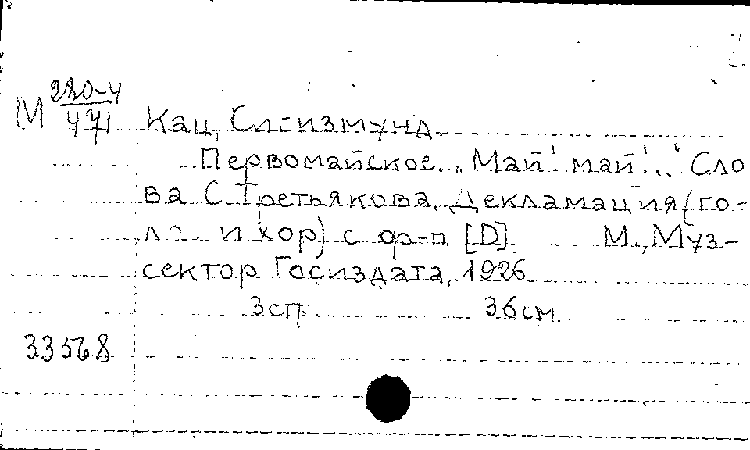 М 280-4/471 Кац, Сигизмунд
Первомайское. „Май! май!.." Сло
ва С. Третьякова. Декламация (го-
ло и хор) с ф-п [D] М., Муз-
сектор Госиздата, 1926
3 сп 36 см
33568